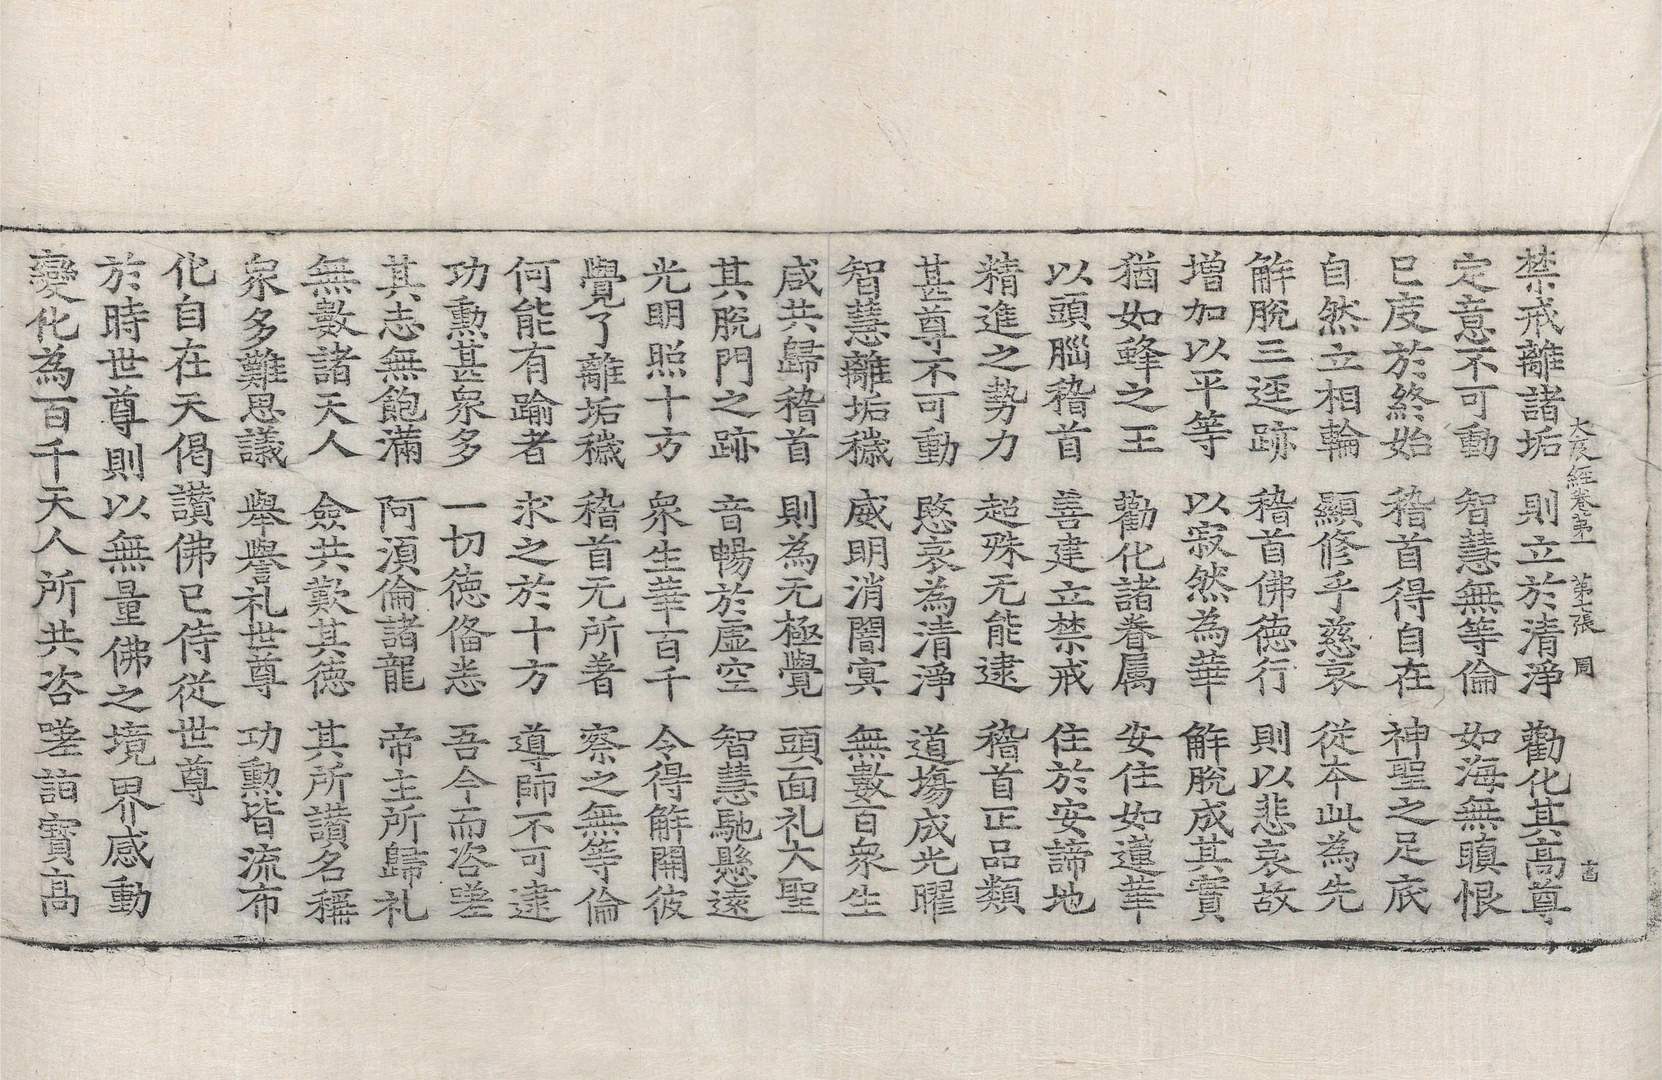 大哀經卷第一　第七張　周
十四
禁戒離諸垢　則立於清淨　勸化其高尊
定意不可動　智慧無等倫　如海無瞋恨
已度於終始　稽首得自在　神聖之足底
自然立相輪　顯修乎慈哀　從本此為先
解脫三逕跡　稽首佛德行　則以悲哀故
增加以平等　以寂然為華　解脫成其實
猶如蜂之王　勸化諸眷属　安住如蓮華
以頭腦稽首　善建立禁戒　住於安諦地
精進之勢力　超殊无能逮　稽首正品類
甚尊不可動　愍哀為清淨　道塲成光曜
智慧離垢穢　威明消闇冥　無數百衆生
咸共歸稽首　則為无極覺　頭面礼大聖
其脫門之跡　音暢於虛空　智慧馳懸遠
光明照十方　衆生華百千　令得解開彼
覺了離垢穢　稽首无所著　察之無等倫
何能有踰者　求之於十方　導師不可逮
功勳甚衆多　一切德俻悉　吾今而咨嗟
其志無飽滿　阿湏倫諸龍　帝主所歸礼
無數諸天人　僉共歎其德　其所讃名稱
衆多難思議　舉譽礼世尊　功勳皆流布
化自在天偈讚佛已侍從世尊
於時世尊則以無量佛之境界感動
變化為百千天人所共咨嗟詣寳高